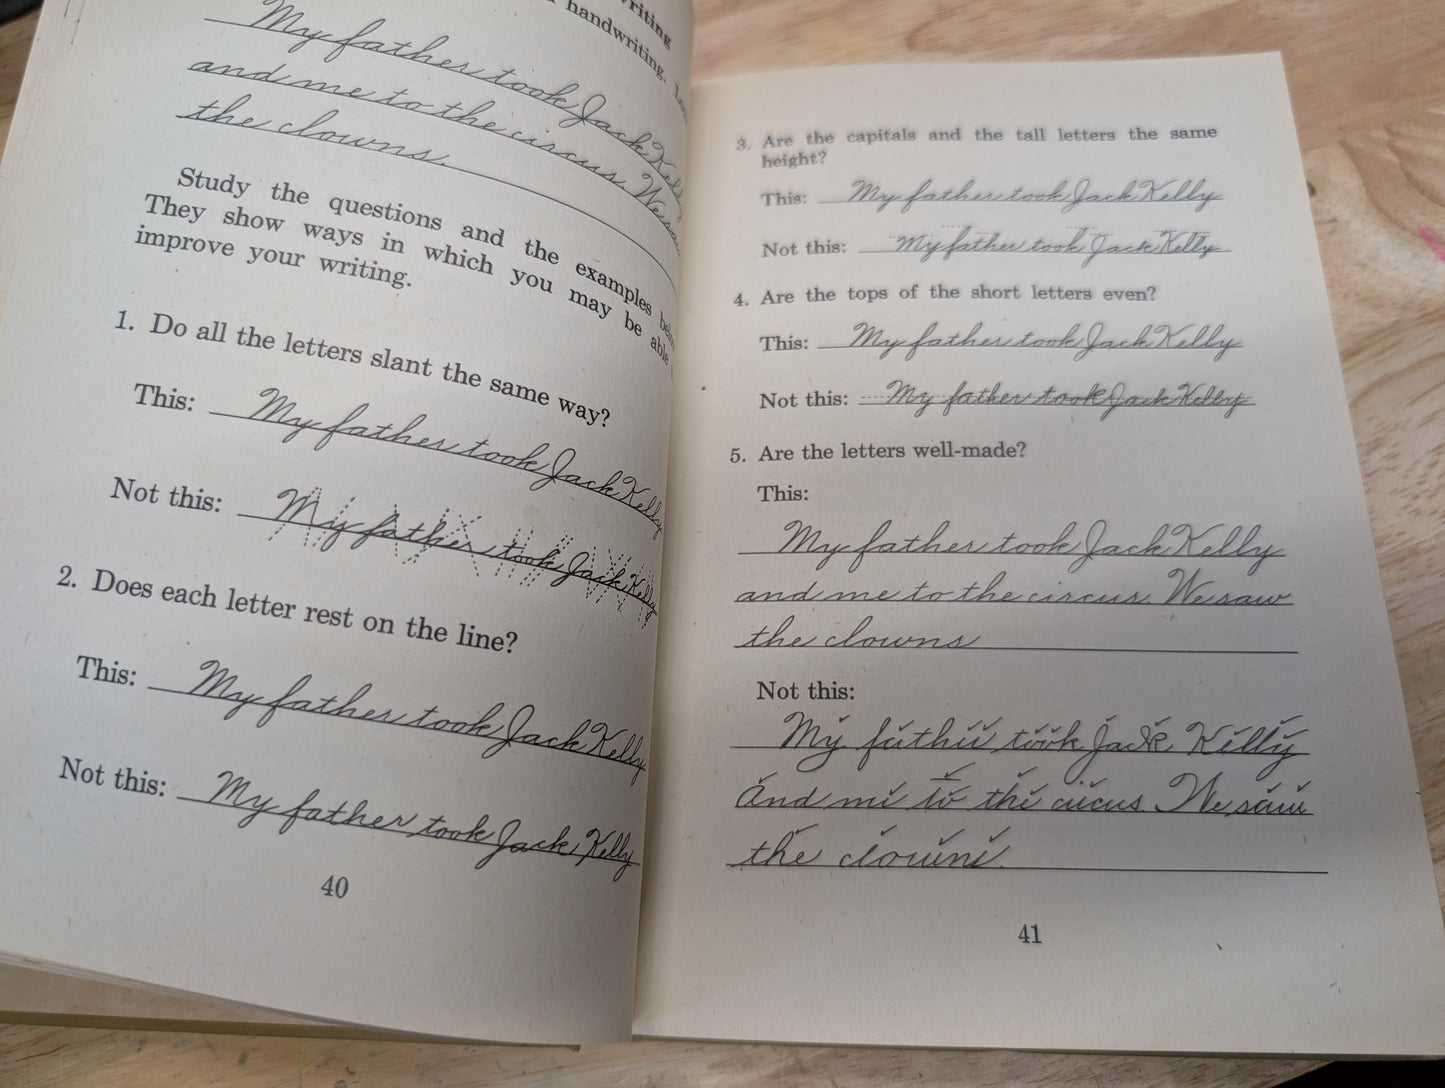 writing
handwriting.
My father took Jack Kelly
and me to the circus. We saw
the clowns.
Study the questions and the examples
They show ways in which you may be able
improve your writing.
1. Do all the letters slant the same way?
This: My father took Jack Kelly
Not this: My father took Jack Kelly
2. Does each letter rest on the line?
This: My father took Jack Kelly
Not this: My father took Jack Kelly
40
3. Are the capitals and the tall letters the same
height?
This: My father took Jack Kelly
Not this: My father took Jack Kelly
4. Are the tops of the short letters even?
This: My father took Jack Kelly
Not this: My father took Jack Kelly
5. Are the letters well-made?
This:
My father took Jack Kelly
and me to the circus. We saw
the clowns
Not this:
My father took Jack Kelly
and me to the circus. We saw
the clowns.
41